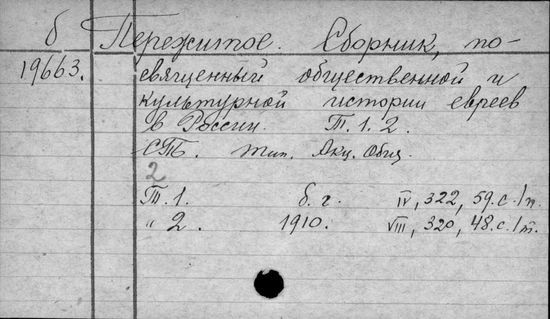 б Пережитое. Сборник, по-
19663. священный общественной и
культурной истории евреев
в России. Т. 1. 2.
СПб. Тип. Акц. Общ.
2
Т. 1. б. г. IV, 322, 59. с. 1 т.
" 2. 1910. VIII, 320, 48. с. 1 т.